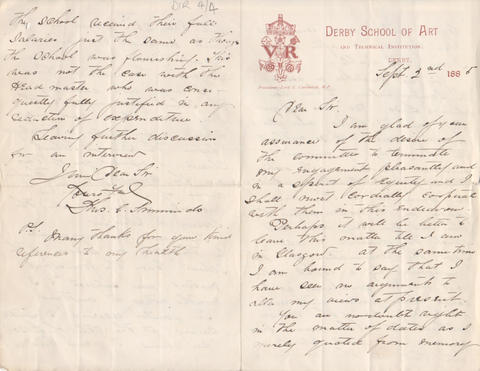 DERBY SCHOOL OF ART
AND TECHNICAL INSTITUTION,
DERBY.
V R
Sept 2nd 1885
Dear Sir
I am glad of your
assurance of the desire of
the committee to terminate
my engagement pleasantly and
in a spirit of equity and I
shall most cordially cooperate
with them in this endeavour
Perhaps it will be better to
leave this matter till I am
in Glasgow at the same time
I am bound to say that I
have seen no arguments to
alter my views at present.
You are no doubt right
in the matter of dates as I
merely quoted from memory
DIR 4/4
the School received their full
salaries just the same as though
the School was flourishing. This
was not the case with the
Head master who was conse-
quently fully justified in any
reduction of expenditure.
Leaving further discussion
for an interview
I am Dear Sir
Yours
Thos. C. Simmonds
PS. Many thanks for your kind
references to my health